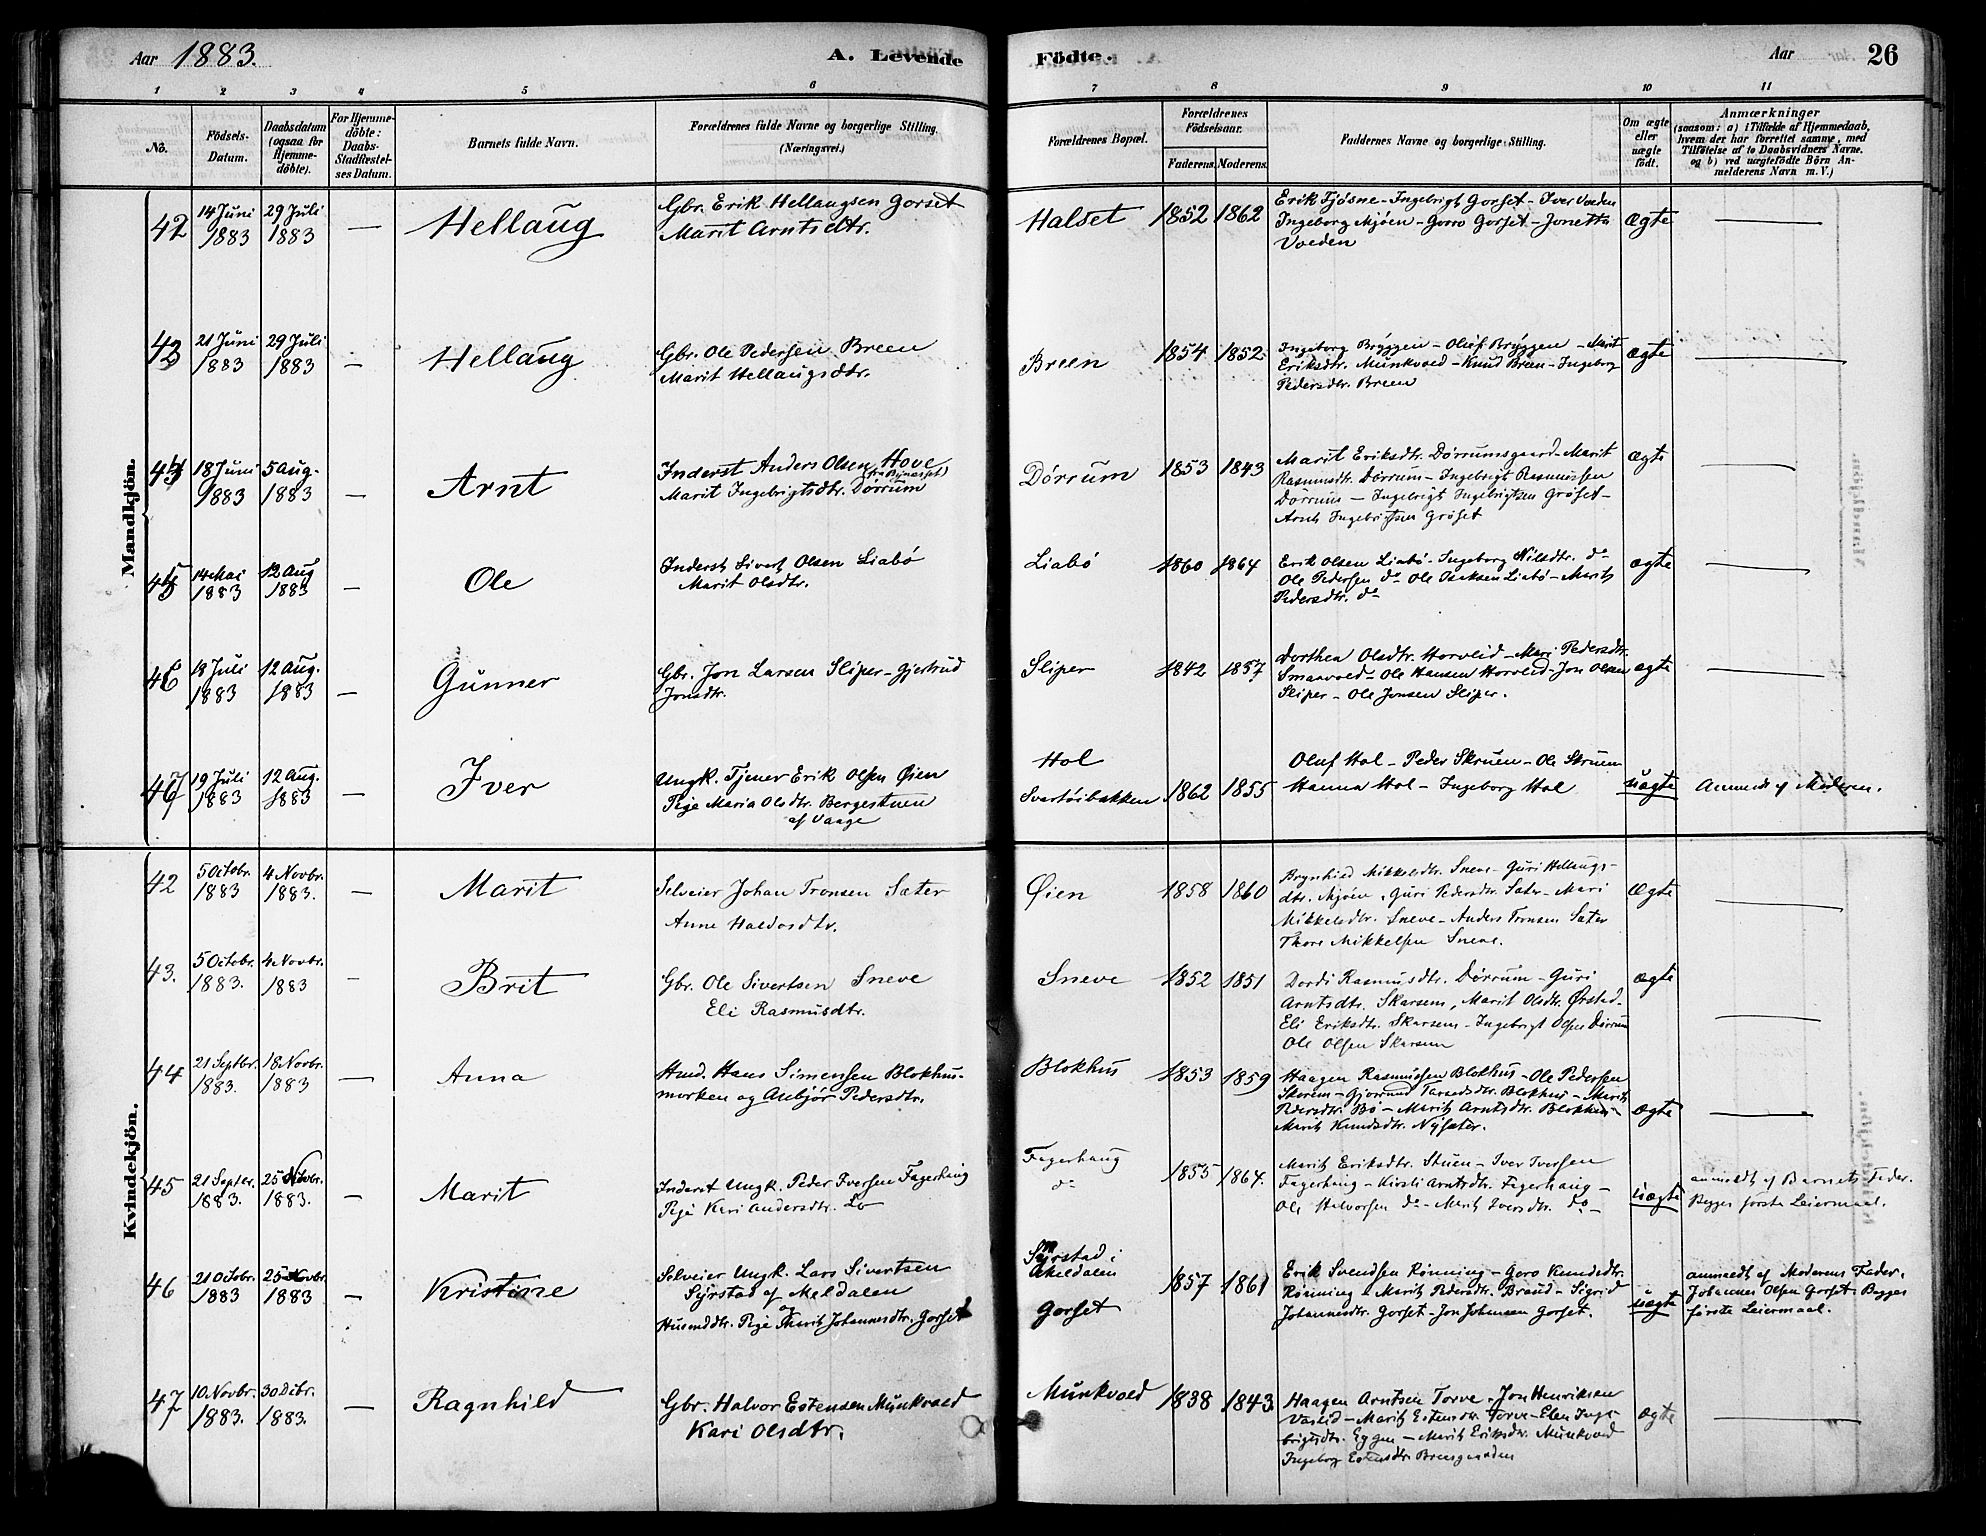 Aar 1883.
A. Levende
Födte.
Aar
26
1 2 3 4 5 6 7 8 9 10 11
No.
Födsels-
Datum.
Daabsdatum
(ogsaa for
Hjemme-
döbte).
For Hjemme-
döbte:
Daabs-
Stadfæstel-
ses Datum.
Barnets fulde Navn.
Forældrenes fulde Navne og borgerlige Stilling.
(Næringsvei.)
Forældrenes Bopæl.
Forældrenes
Födselsaar.
Faderens. Moderens.
Faddernes Navne og borgerlige Stilling.
Om ægte
eller
uægte
födt.
Anmærkninger
(saasom: a) i Tilfælde af Hjemmedaab,
hvem der har forrettet samme, med
Tilföielse af to Daabsvidners Navne.
og b) ved uægtefödte Börn An-
melderens Navn m. V.)
Mandkjön.
42 14 Juni 1883 29 Juli 1883 — Hellaug
Gbr. Erik Hellaugsen Gorset
Marit Arntsdtr.
Halset 1852 1862
Erik Fjøsne - Ingebrigt Gorset - Iver Voeden
Ingeborg Mjøen - Goro Gorset - Jonetta
Voeden
Ægte —
43 21 Juni 1883 29 Juli 1883 — Hellaug
Gbr. Ole Pedersen Breen
Marit Hellaugsdtr.
Breen 1854 1852
Ingeborg Bryggen - Oluf Bryggen - Marit
Eriksdtr. Munkvoed - Knud Breen - Ingeborg
Pedersdtr. Breen
ægte —
44 18 Juni 1883 5 Aug. 1883 — Arnt
Inderst Anders Olsen Hove
Marit Ingebrigtsdtr. Dørrum
Dörrum 1853 1843
Marit Eriksdtr. Dørrumsgaard - Marit
Rasmusdtr. Dørrum - Ingebrigt Rasmussen
Dørrum - Ingebrigt Ingebrigtsen Grøset -
Arnt Ingebrigtsen Grøset
ægte —
45 14 Mai 1883 12 Aug 1883 — Ole
Inderst Sivert Olsen Liabø
Marit Olsdtr.
Liabö 1860 1864
Erik Olsen Liabø - Ingeborg Nilsdtr. do
Ole Pedersen do Ole Isaksen Liabø - Marit
Pedersdtr. do
ægte —
46 18 Juli 1883 12 Aug. 1883 — Gunner
Gbr. Jon Larsen Sliper - Gjertrud
Jonsdtr.
Sliper 1842 1857
Dorthea Olsdtr. Horvlid - Mari Pedersdtr.
Smaavoed - Ole Hansen Horvlid - Jon Olsen
Sliper - Ole Jonsen Sliper.
ægte —
47 19 Juli 1883 12 Aug. 1883 — Iver
Ungk. Tjener Erik Olsen Øien
Pige Maria Olsdtr. Bergestuen
af Vaage
Hol
Svartöibakken 1862 1855
Oluf Hol - Peder Skruen - Ole Skruen
Hanna Hol - Ingeborg Hol
uægte Anmeldt af Moderen.
Kvindekjön.
42 5 Octobr. 1883 4 Novbr. 1883. — Marit
Selveier Johan Tronsen Sæter
Anne Haldosdtr.
Øien 1858 1860
Brynhild Mikkelsdtr. Sneve - Guri Hellaugs-
dtr. Mjøen, Guri Pedersdtr. Sæter - Mari
Mikkelsdtr. Sneve - Anders Tronsen Sæter
Thore Mikkelsen Sneve.
Ægte —
43. 5 Octobr. 1883. 4 Novbr. 1883 — Brit
Gbr. Ole Sivertsen Sneve
Eli Rasmusdtr.
Sneve 1852 1851
Dordi Rasmusdtr. Dørrum - Guri
Arntsdtr. Skarsem, Marit Olsdtr. Ørstad -
Eli Eriksdtr. Skarsem - Ingebrigt Olsen Dørrum
Ole Olsen Skarsem
ægte —
44 21 Septbr. 1883. 18 Novbr. 1883 — Anna
Husd. Hans Simensen Blokhus-
morken og Anbjør Pedersdtr.
Blokhus 1853 1859
Haagen Rasmussen Blokhus - Ole Pedersen
Skorem - Gjorund Blokhus - Marit
Pedersdtr. Bø - Marit Arntsdtr. Blokhus -
Marit Knudsdtr. Nysæter.
ægte —
45 21 Septbr. 1883. 25 Novbr. 1883. — Marit
Inderst Ungk. Peder Iversen Fagerhaug
Pige Kari Andersdtr. Lo
Fagerhaug
do 1855 1864.
Marit Eriksdtr. Stuen - Iver Iversen
Fagerhaug - Kirsti Arntsdtr. Fagerhaug -
Ole Halvorsen do - Marit Iversdtr. do -
uægte
anmeldt af Barnets Fader.
Begges første Leiermaal.
46 21 Octobr. 1883 25 Novbr. 1883 — Kristine
Selveier Ungk. Lars Sivertsen
Syrstad af Meldalen
Husmddtr. Pige Marit Johannesdtr. Gorset
Syrstad i
Meldalen
Gorset 1857 1861
Erik Svendsen Rønning - Goro Knudsdtr.
Rønning - Marit Pedersdtr. Braud - Sigrid
Johannesdtr. Gorset - Jon Johansen Gorset.
uægte
anmeldt af Moderens Fader,
Johannes Olsen Gorset. Begges
første Leiermaal.
47 10 Novbr. 1883. 30 Dcbr. 1883. — Ragnhild
Gbr. Halvor Estensen Munkvoed
Kari Olsdtr.
Munkvoed 1838 1843
Haagen Arntsen Torve - Jon Henriksen
Vaslid - Marit Estensdtr. Torve - Elen Inge-
brigtsdtr. Eggen - Marit Eriksdtr. Munkvoed
Ingeborg Estensdtr. Breesgaarden
ægte —